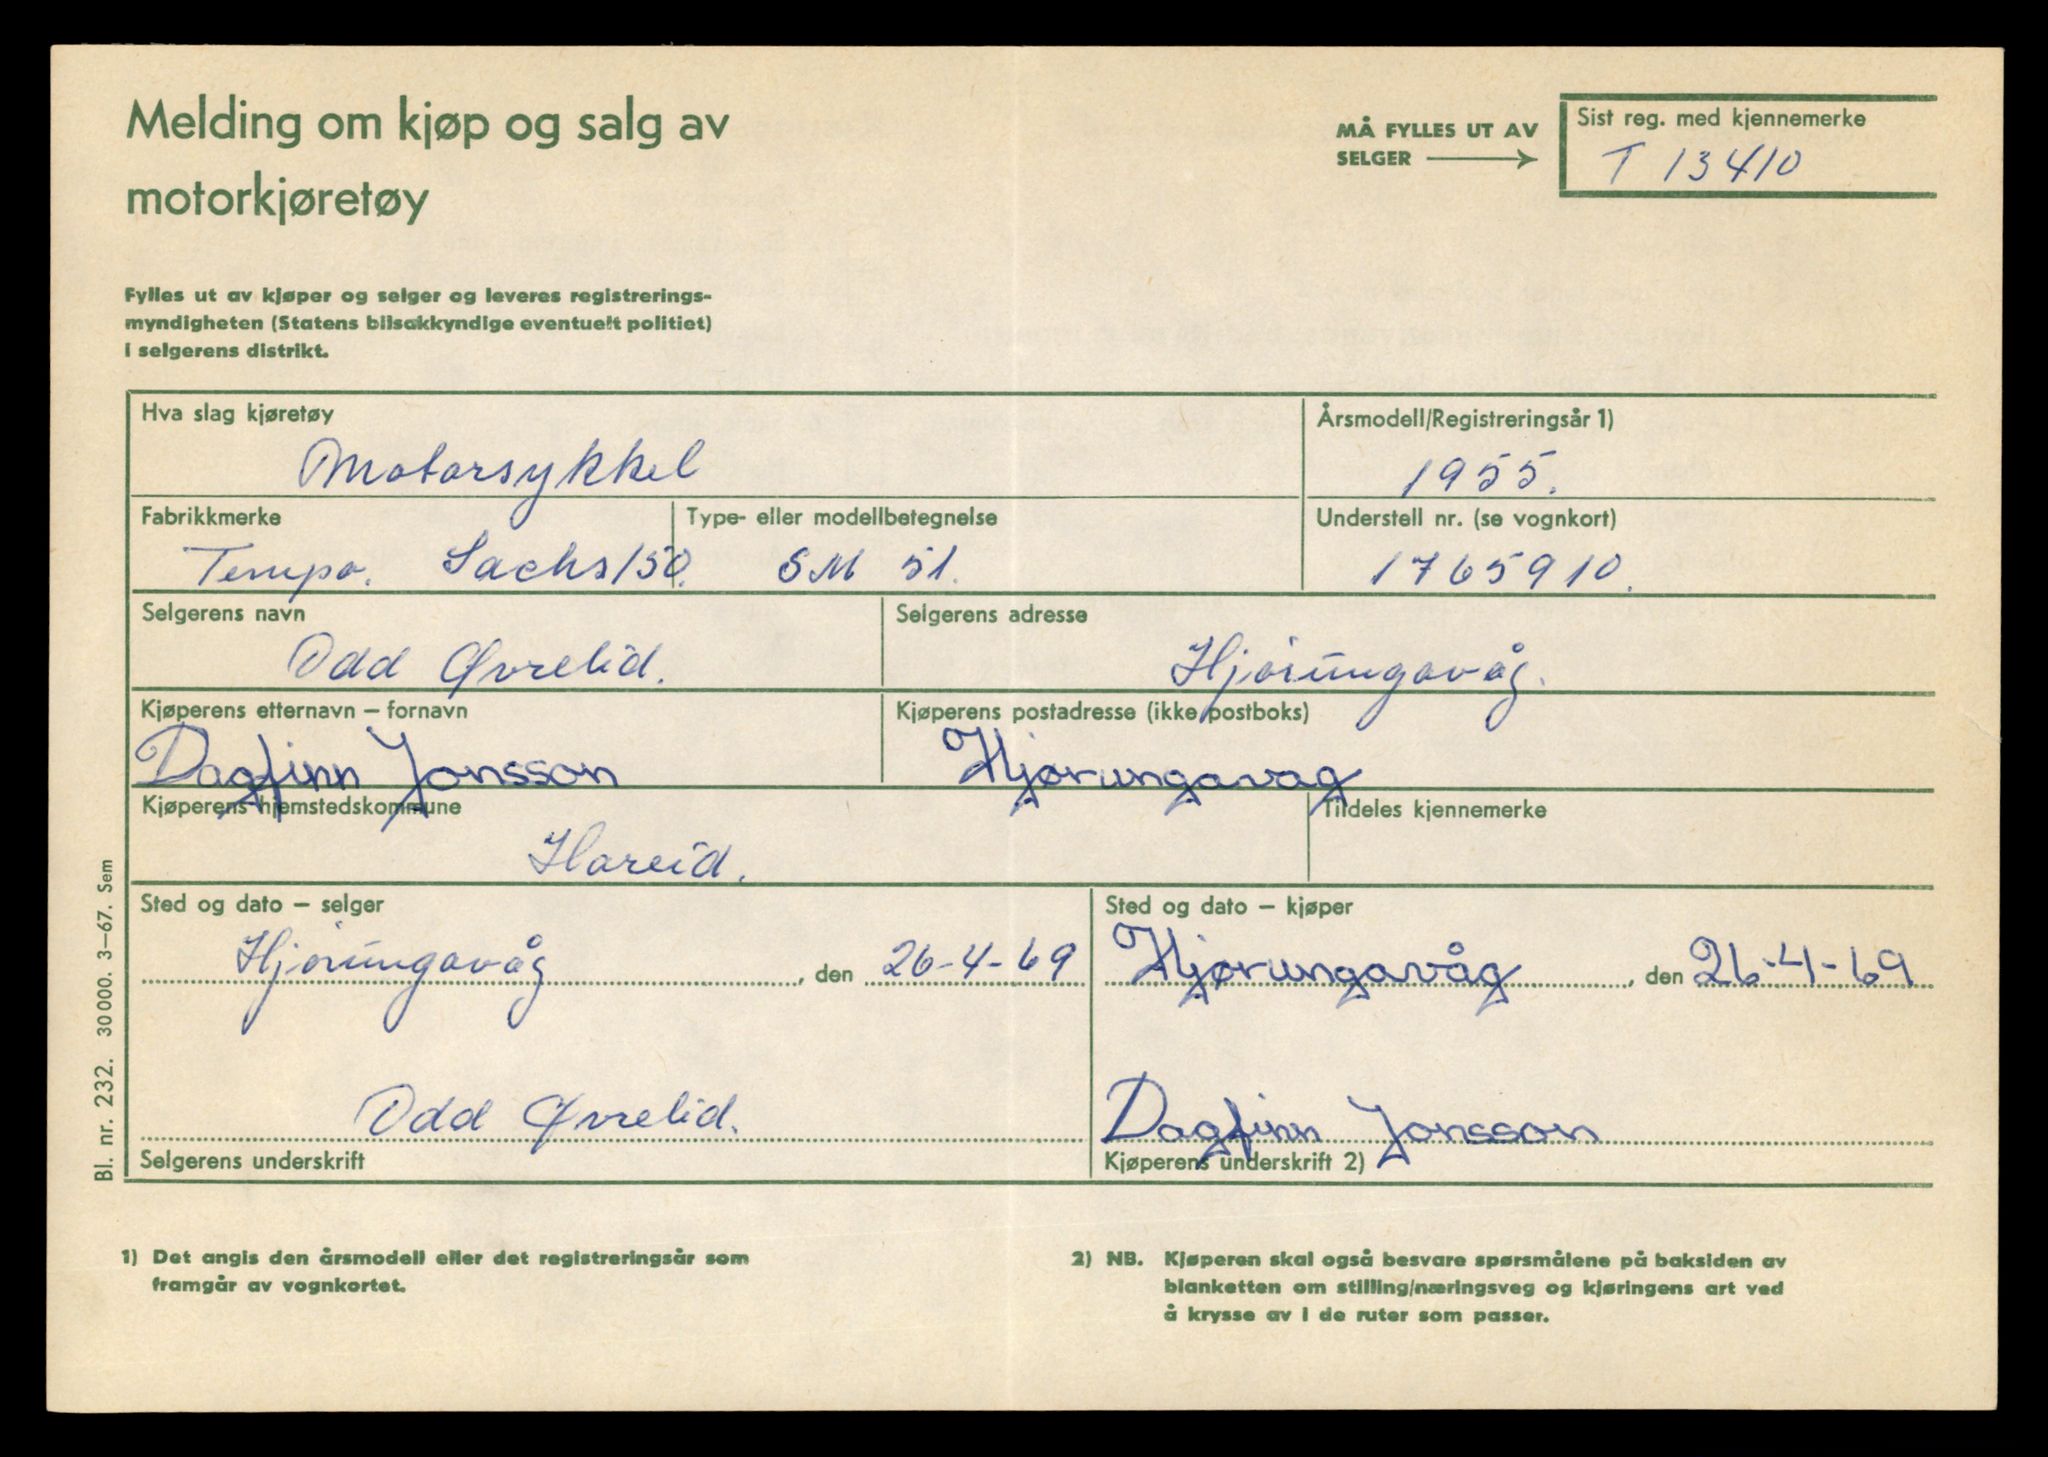 Melding om kjøp og salg av
motorkjøretøy
MÅ FYLLES UT AV
SELGER
Sist reg. med kjennemerke
T 13410
Fylles ut av kjøper og selger og leveres registrerings-
myndigheten (Statens bilsakkyndige eventuelt politiet)
i selgerens distrikt.
Hva slag kjøretøy
Motorsykkel
Årsmodell/Registreringsår 1)
1955.
Fabrikkmerke
Tempo. Sachs 150.
Type- eller modellbetegnelse
SM 51.
Understell nr. (se vognkort)
1765910.
Selgerens navn
Odd Øvrelid.
Selgerens adresse
Hjørungavåg.
Kjøperens etternavn – fornavn
Dagfinn Jonsson
Kjøperens postadresse (ikke postboks)
Hjørungavag
Kjøperens hjemstedskommune
Hareid.
Tildeles kjennemerke
Sted og dato – selger
Hjørungavåg, den 26-4-69
Sted og dato – kjøper
Hjørungavåg, den 26-4-69
Odd Øvrelid.
Selgerens underskrift
Dagfinn Jonsson
Kjøperens underskrift 2)
Bl. nr. 232. 30000. 3–67. Sem
1) Det angis den årsmodell eller det registreringsår som
framgår av vognkortet.
2) NB. Kjøperen skal også besvare spørsmålene på baksiden av
blanketten om stilling/næringsveg og kjøringens art ved
å krysse av i de ruter som passer.